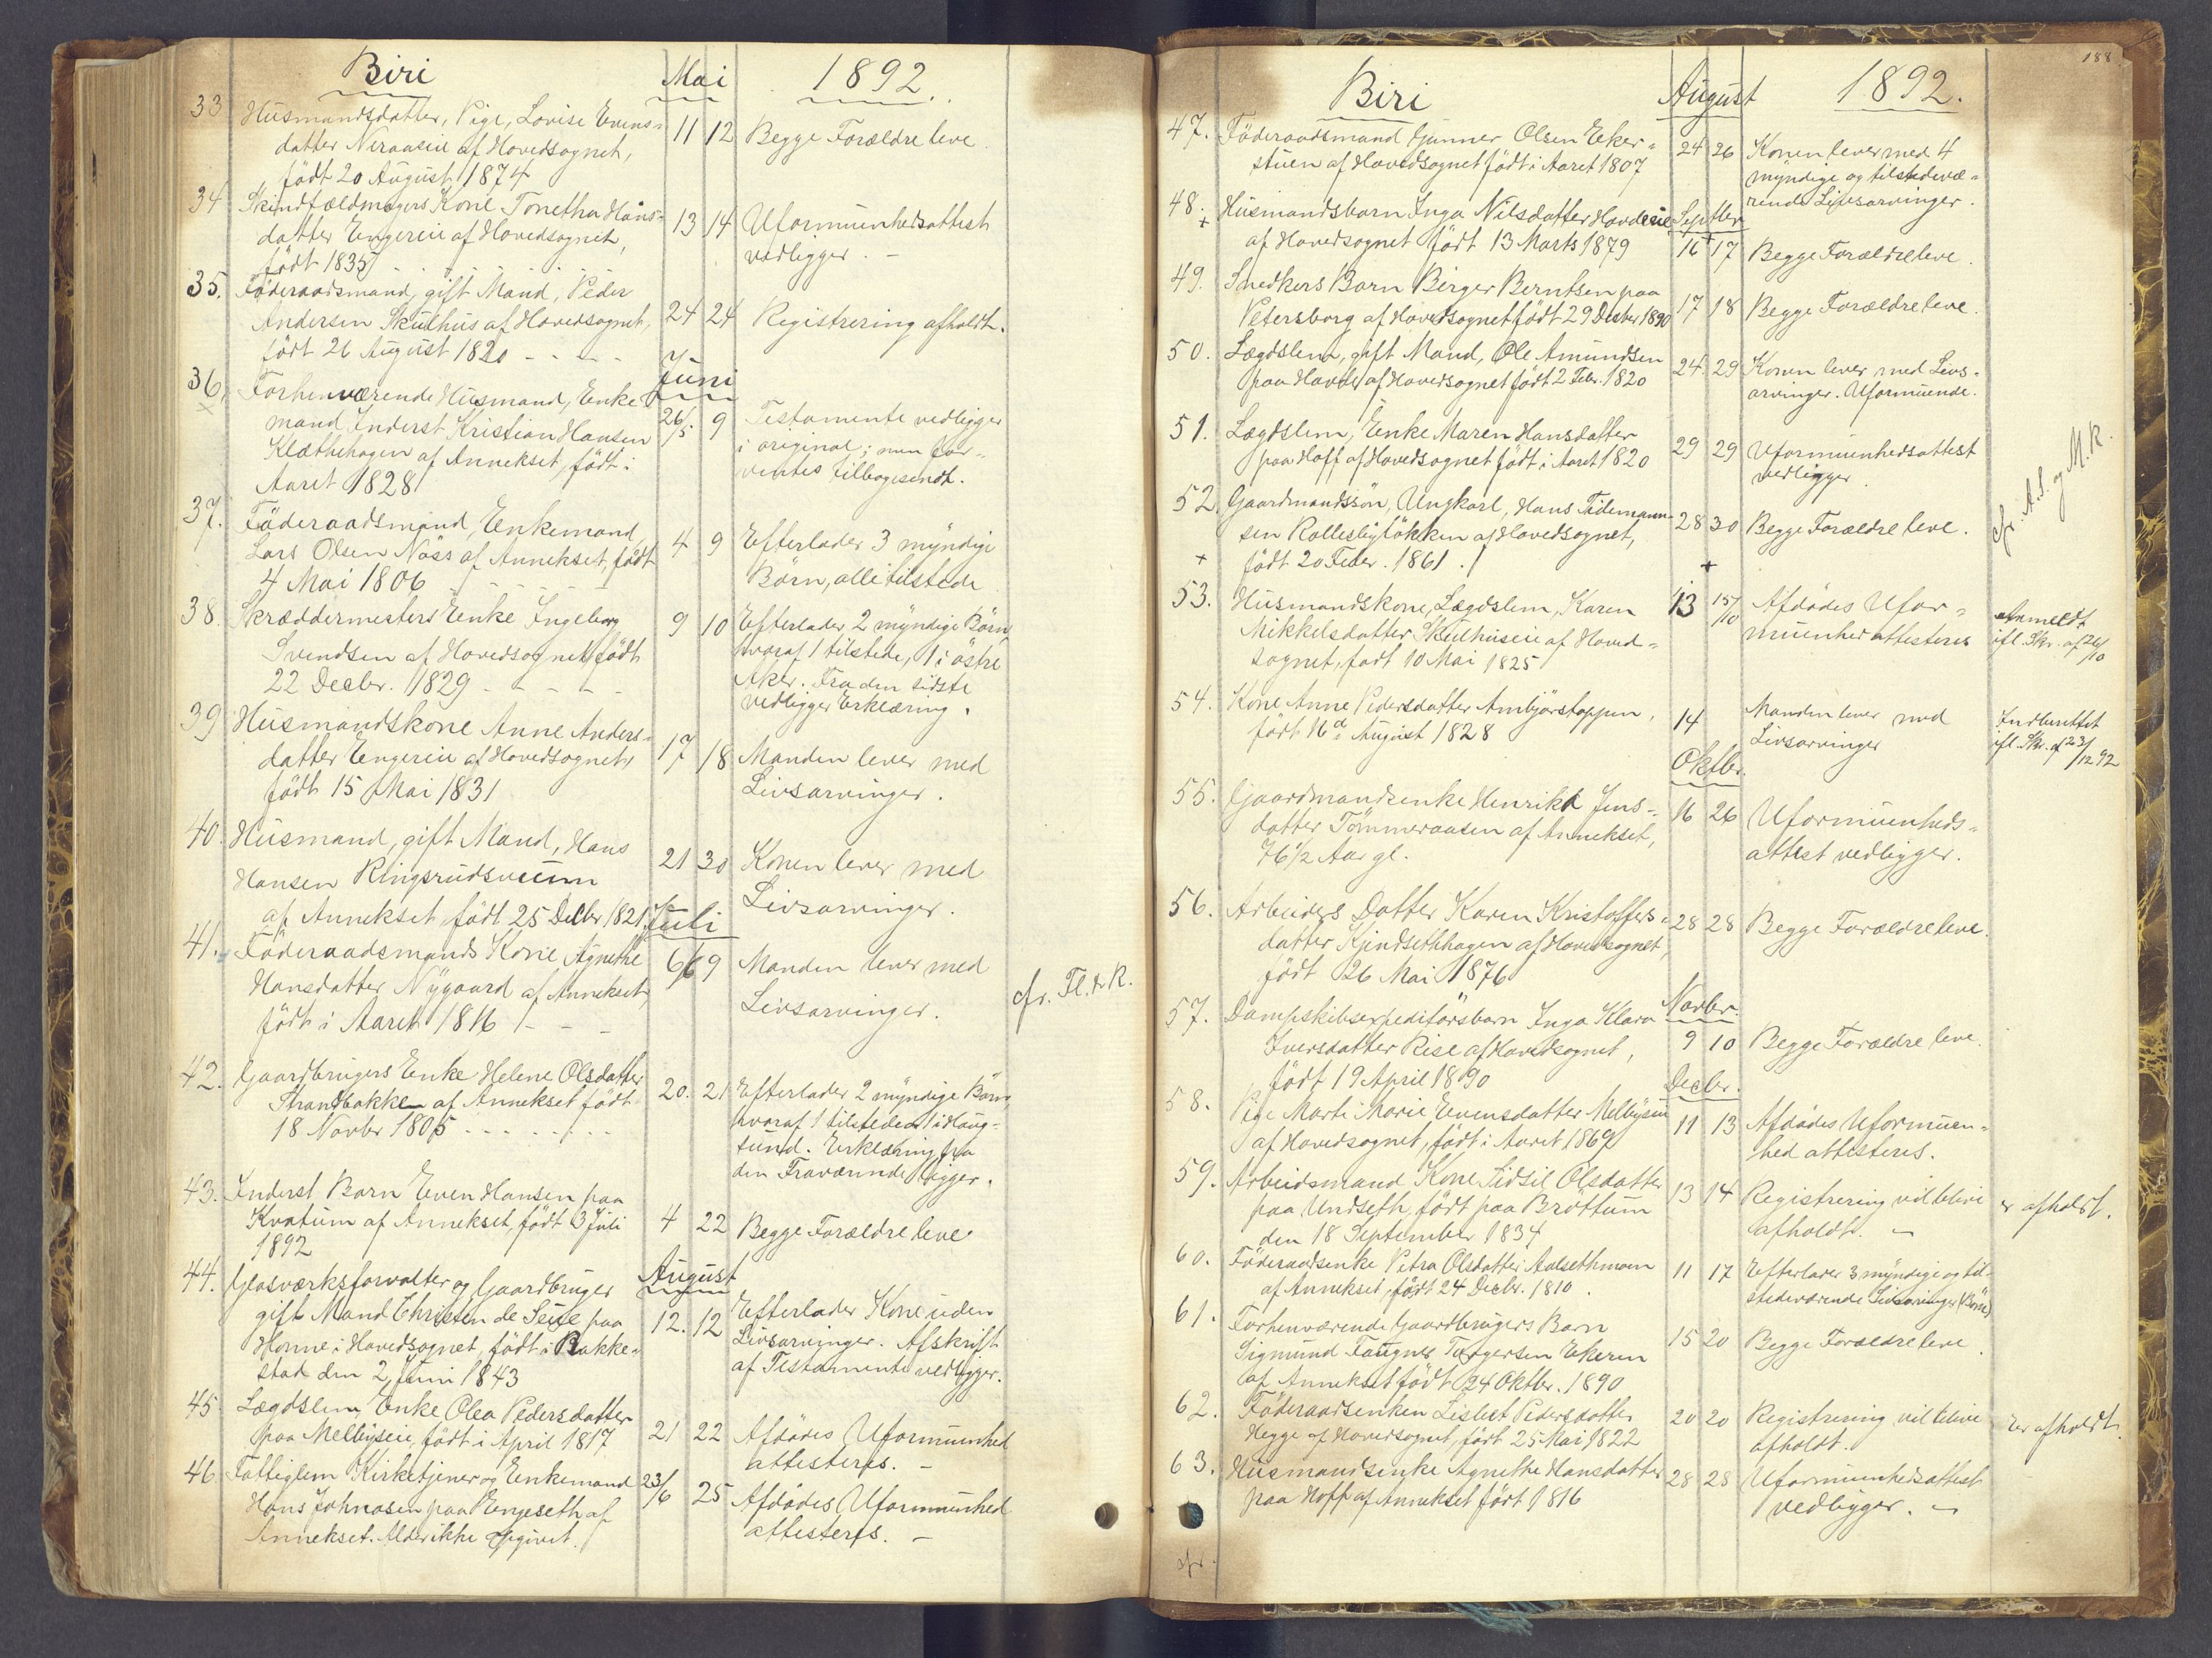 Biri
Mai
1892.
33 Husmandsdatter, Pige, Lovise Evens-
datter Neraasie af Hovedsognet,
født 20 August 1874
11 12 Begge Forældre leve.
34 Skindfældmagers Kone Tonetha Hans-
datter Engereie af Hovedsognet,
født 1835
13 14 Uformuenhedsattest
vedligger. -
35. Föderaadsmand, gift Mand, Peder
Andersen Skulhus af Hovedsognet,
født 26 August 1820 - - - -
24 24 Registrering afholdt.
Juni
36. Forhenværende Husmand, Enke-
mand Inderst Kristian Hansen
Klæthehagen af Annekset, født i
Aaret 1828
26/5 9 Testamente vedligger
i original; men for-
ventes tilbagesendt.
37. Föderaadsmand, Enkemand
Lars Olsen Näss af Annekset, født
4 Mai 1806
4 9 Efterlader 3 myndige
Börn, alle tilstede
38. Skræddermesters Enke Ingeborg
Svendsen af Hovedsognet født
22 Decbr. 1829 - - - -
9 10 Efterlader 2 myndige Börn,
hvoraf 1 tilstede, 1 i östre
Aker. Fra den sidste
vedligger Erklæring.
39 Husmandskone Anne Anders-
datter Engereie af Hovedsognet
født 15 Mai 1831
17 18 Manden lever med
Livsarvinger.
40. Husmand, gift Mand, Hans
Hansen Ringsrudsveen
af Annekset, født 25 Decbr 1821.
21 30 Konen lever med
Livsarvinger.
Juli
41. Föderaadsmands Kone Agnethe
Hansdatter Nygaard af Annekset,
født i Aaret 1816 - - -
6/6 9 Manden lever med
Livsarvinger.
cfr. Fl. & R.
42. Gaardbrugers Enke Helene Olsdatter
Strandbakken af Annekset født
18 Novbr 1805 - - - - - - -
20. 21 Efterlader 2 myndige Börn,
hvoraf 1 tilstede 1 i Haug-
sund. Erklæring fra
den Fraværende ligger.
43. Inderst Barn Even Hansen paa
Kvatum af Annekset, født 3 Juli
1892
4 22 Begge Forældre leve
August
44. Glasværksforvalter og Gaardbruger
gift Mand Christen de Seue paa
Honne i Hovedsognet, født i Rakke-
stad den 2 Juni 1843
12. 12 Efterlader Kone uden
Livsarvinger. Afskrift
af Testamente vedligger.
45 Lægdslem, Enke Olea Pedersdatter
paa Melbyseie, født i April 1817
21 22 Afdödes Uformuenhed
attesteres. -
46. Fattiglem Kirketjener og Enkemand
Hans Johnasen paa Engeseth af
Annekset. Alder ikke opgivet.
23/6 25 Afdödes Uformuenhed
attesteres. -
188
Biri
August
1892.
47. Föderaadsmand Gunner Olsen Eker-
stuen af Hovedsognet født i Aaret 1807
24 26 Konen lever med 4
myndige og tilstedevæ-
rende Livsarvinger.
48. Husmandsbarn Inga Nilsdatter Hovdeeie
af Hovedsognet født 13 Marts 1879
Septbr
16 17 Begge Forældre leve.
49. Snedkers Barn Birger Berntsen paa
Petersborg af Hovedsognet født 29 Decbr 1890
17 18 Begge Forældre leve.
50. Lægdslem, gift Mand, Ole Amundsen
paa Hovde af Hovedsognet født 2 Febr. 1820
24. 29 Konen lever med Livs-
arvinger. Uformuende.
51. Lægdslem, Enke Maren Hansdatter
paa Hoff af Hovedsognet født i Aaret 1820
29 29 Uformuenhedsattest
vedligger.
52. Gaardmandssön, Ungkarl, Hans Tidemann-
sen Rollesbylökken af Hovedsognet,
født 20 Febr. 1861.
28 30 Begge Forældre leve.
cfr. A.S. og M.R.
53. Husmandskone, Lægdslem, Karen
Mikkelsdatter Skulhuseie af Hoved-
sognet, født 10 Mai 1825
13 15/10 Afdödes Ufor-
muenhed attesteres
Anmeldt
ifl. Skr. af 26/10
54. Kone Anne Pedersdatter Ambjörstoppen,
født 16d August 1828
14 Manden lever med
Livsarvinger
Indberettet
ifl. Skr. af 23/12 92
Oktbr.
55. Gaardmandsenke Henrikd Jens-
datter Tömmeraasen af Annekset,
76 1/2 Aar gl.
16 26 Uformuenheds-
attest vedligger.
56. Arbeiders Datter Karen Kristoffers-
datter Kjindsethhagen af Hovedsognet,
født 26 Mai 1876
28 28 Begge Forældre leve.
Novbr.
57. Dampskibsexpeditörsbarn Inga Klara
Iversdatter Rise af Hovedsognet,
født 19 April 1890
9 10 Begge Forældre leve.
Decbr.
58. Pige Marte Marie Evensdatter Melbyseie
af Hovedsognet, født i Aaret 1869
11 13 Afdödes Uformuen-
hed attesteres.
59. Arbeidsmand Kone Sidsil Olsdatter
paa Undseth, født paa Bröttum
den 18 September 1834
13 14 Registrering vil blive
afholdt. -
er afholdt.
60. Föderaadsenke Petra Olsdatter Aalsethmoen
af Annekset, født 24 Decbr. 1810.
11 17 Efterlader 3 myndige og til-
stedeværende Livsarvinger (Börn)
61. Forhenværende Gaardbrugers Barn
Sigmund Faugner Torgersen Ekeren
af Annekset født 24 Oktbr. 1890
15 20 Begge Forældre leve.
62. Föderaadsenken Lisbet Pedersdatter
Hegge af Hovedsognet, født 25 Mai 1822
20 20 Registrering vil blive
afholdt.
Er afholdt.
63. Husmandsenke Agnethe Hansdatter
paa Hoff af Annekset født 1816
28 28 Uformuenhedsattest
vedligger. -
cfr.